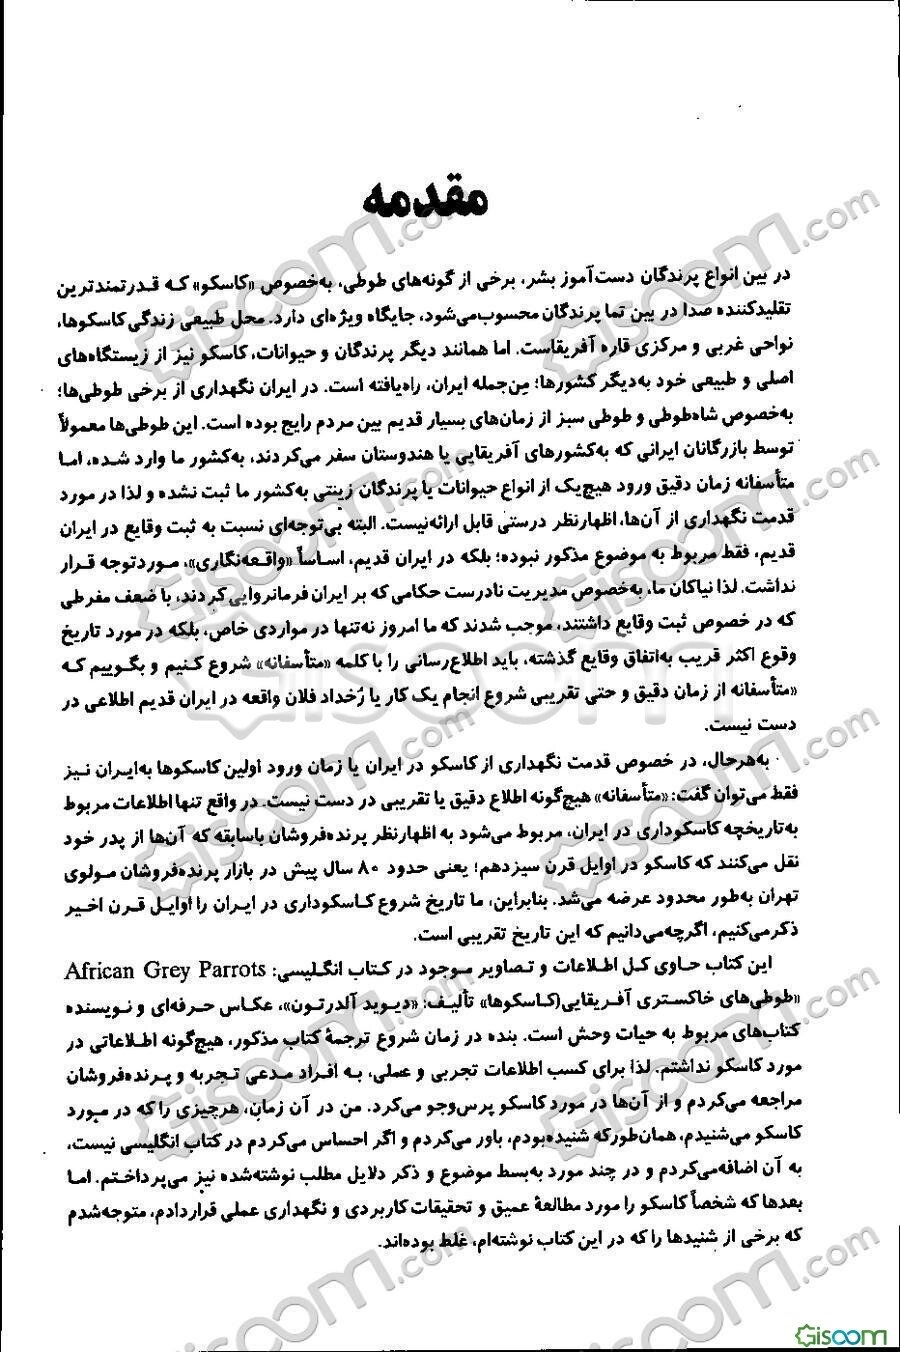 مقدمه
در بین انواع پرندگان دست‌آموز بشر، برخی از گونه‌های طوطی، به‌خصوص «کاسکو» که قدرتمندترین
تقلیدکننده صدا در بین تما پرندگان محسوب‌می‌شود، جایگاه ویژه‌ای دارد. محل طبیعی زندگی کاسکوها،
نواحی غربی و مرکزی قاره آفریقاست. اما همانند دیگر پرندگان و حیوانات، کاسکو نیز از زیستگاه‌های
اصلی و طبیعی خود به‌دیگر کشورها؛ مِن‌جمله ایران، راه‌یافته است. در ایران نگهداری از برخی طوطی‌ها؛
به‌خصوص شاه‌طوطی و طوطی سبز از زمان‌های بسیار قدیم بین مردم رایج بوده است. این طوطی‌ها معمولاً
توسط بازرگانان ایرانی که به‌کشورهای آفریقایی یا هندوستان سفر می‌کردند، به‌کشور ما وارد شده، اما
متأسفانه زمان دقیق ورود هیچ‌یک از انواع حیوانات یا پرندگان زینتی به‌کشور ما ثبت نشده و لذا در مورد
قدمت نگهداری از آن‌ها، اظهارنظر درستی قابل ارائه‌نیست. البته بی‌توجه‌ای نسبت به ثبت وقایع در ایران
قدیم، فقط مربوط به موضوع مذکور نبوده؛ بلکه در ایران قدیم، اساساً «واقعه‌نگاری»، موردتوجه قرار
نداشت. لذا نیاکان ما، به‌خصوص مدیریت نادرست حکامی که بر ایران فرمانروایی کردند، با ضعف مفرطی
که در خصوص ثبت وقایع داشتند، موجب شدند که ما امروز نه‌تنها در مواردی خاص، بلکه در مورد تاریخ
وقوع اکثر قریب به‌اتفاق وقایع گذشته، باید اطلاع‌رسانی را با کلمه «متأسفانه» شروع کنیم و بگوییم که
«متأسفانه از زمان دقیق و حتی تقریبی شروع انجام یک کار یا رُخداد فلان واقعه در ایران قدیم اطلاعی در
دست نیست.
به‌هرحال، در خصوص قدمت نگهداری از کاسکو در ایران یا زمان ورود اولین کاسکوها به‌ایران نیز
فقط می‌توان گفت: «متأسفانه» هیچ‌گونه اطلاع دقیق یا تقریبی در دست نیست. در واقع تنها اطلاعات مربوط
به‌تاریخچه کاسکوداری در ایران، مربوط می‌شود به اظهارنظر پرنده‌فروشان باسابقه که آن‌ها از پدر خود
نقل می‌کنند که کاسکو در اوایل قرن سیزدهم؛ یعنی حدود ۸۰ سال پیش در بازار پرنده‌فروشان مولوی
تهران به‌طور محدود عرضه می‌شد. بنابراین، ما تاریخ شروع کاسکوداری در ایران را اوایل قرن اخیر
ذکرمی‌کنیم، اگرچه‌می‌دانیم که این تاریخ تقریبی است.
این کتاب حاوی کل اطلاعات و تصاویر موجود در کتاب انگلیسی: African Grey Parrots
«طوطی‌های خاکستری آفریقایی(کاسکوها» تألیف: «دیوید آلدرتون»، عکاس حرفه‌ای و نویسنده
کتاب‌های مربوط به حیات وحش است. بنده در زمان شروع ترجمهٔ کتاب مذکور، هیچ‌گونه اطلاعاتی در
مورد کاسکو نداشتم. لذا برای کسب اطلاعات تجربی و عملی، به افراد مدعی تجربه و پرنده‌فروشان
مراجعه می‌کردم و از آن‌ها در مورد کاسکو پرس‌وجو می‌کرد. من در آن زمان، هرچیزی را که در مورد
کاسکو می‌شنیدم، همان‌طورکه شنیده‌بودم، باور می‌کردم و اگر احساس می‌کردم در کتاب انگلیسی نیست،
به آن اضافه‌می‌کردم و در چند مورد به‌بسط موضوع و ذکر دلایل مطلب نوشته‌شده نیز می‌پرداختم. اما
بعدها که شخصاً کاسکو را مورد مطالعهٔ عمیق و تحقیقات کاربردی و نگهداری عملی قراردادم، متوجه‌شدم
که برخی از شنیدها را که در این کتاب نوشته‌ام، غلط بوده‌اند.
Gisoom.com
Gisoom